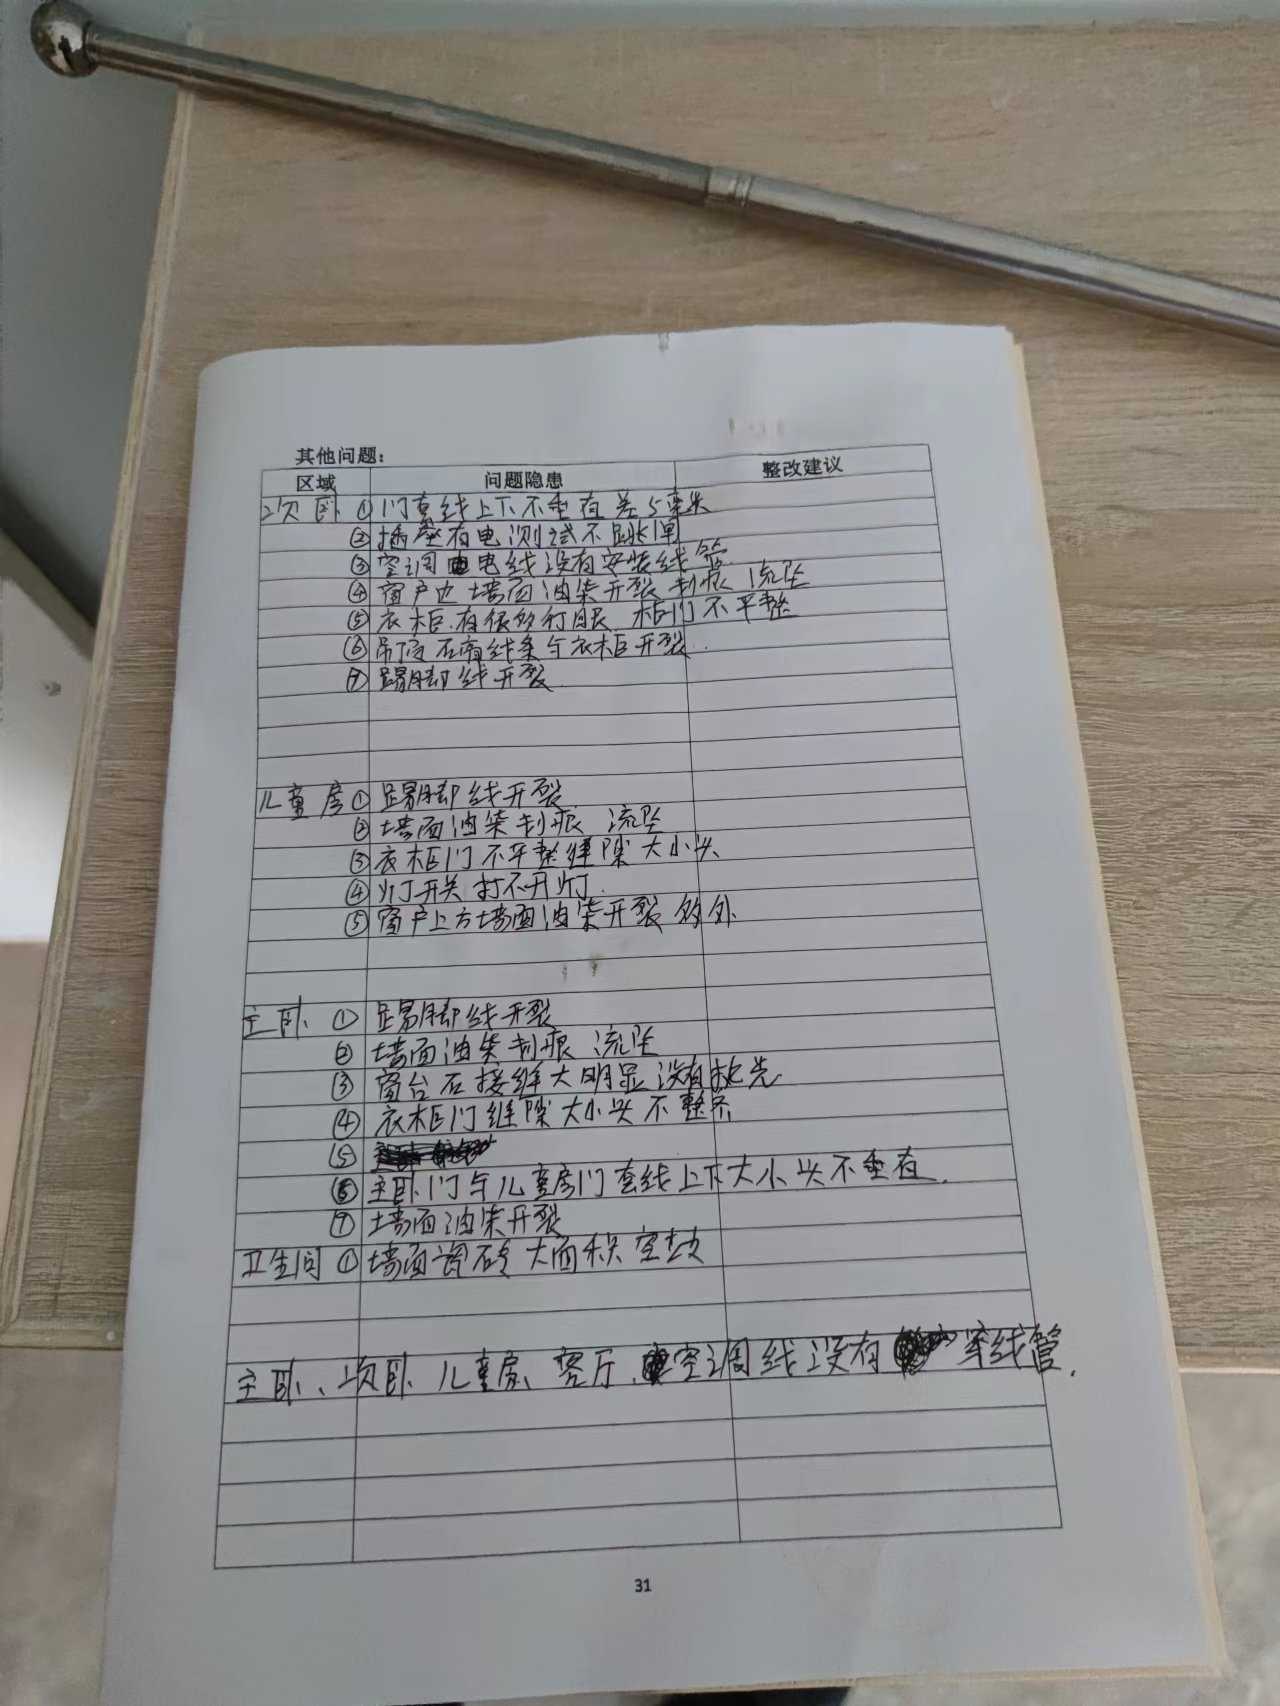 其他问题:
区域 问题隐患 整改建议
次卧 ① 门套线上下不垂直差5毫米
② 插座有电测试不跳闸
③ 空调电线没有安装线管
④ 窗户边墙面油漆开裂 刮痕 流坠
⑤ 衣柜有很多钉眼 柜门不平整
⑥ 吊顶石膏线条与衣柜开裂.
⑦ 踢脚线开裂
儿童房 ① 踢脚线开裂
② 墙面油漆刮痕 流坠
③ 衣柜门不平整缝隙大小头
④ 灯开关打不开灯.
⑤ 窗户上方墙面油漆开裂多处
主卧 ① 踢脚线开裂
② 墙面油漆刮痕 流坠
③ 窗台石接缝大明显没有抛光
④ 衣柜门缝隙大小头不整齐
⑤
⑥ 主卧门与儿童房门套线上下大小头不垂直.
⑦ 墙面油漆开裂
卫生间 ① 墙面瓷砖大面积空鼓
主卧、次卧 儿童房、客厅、空调线没有穿线管.
31